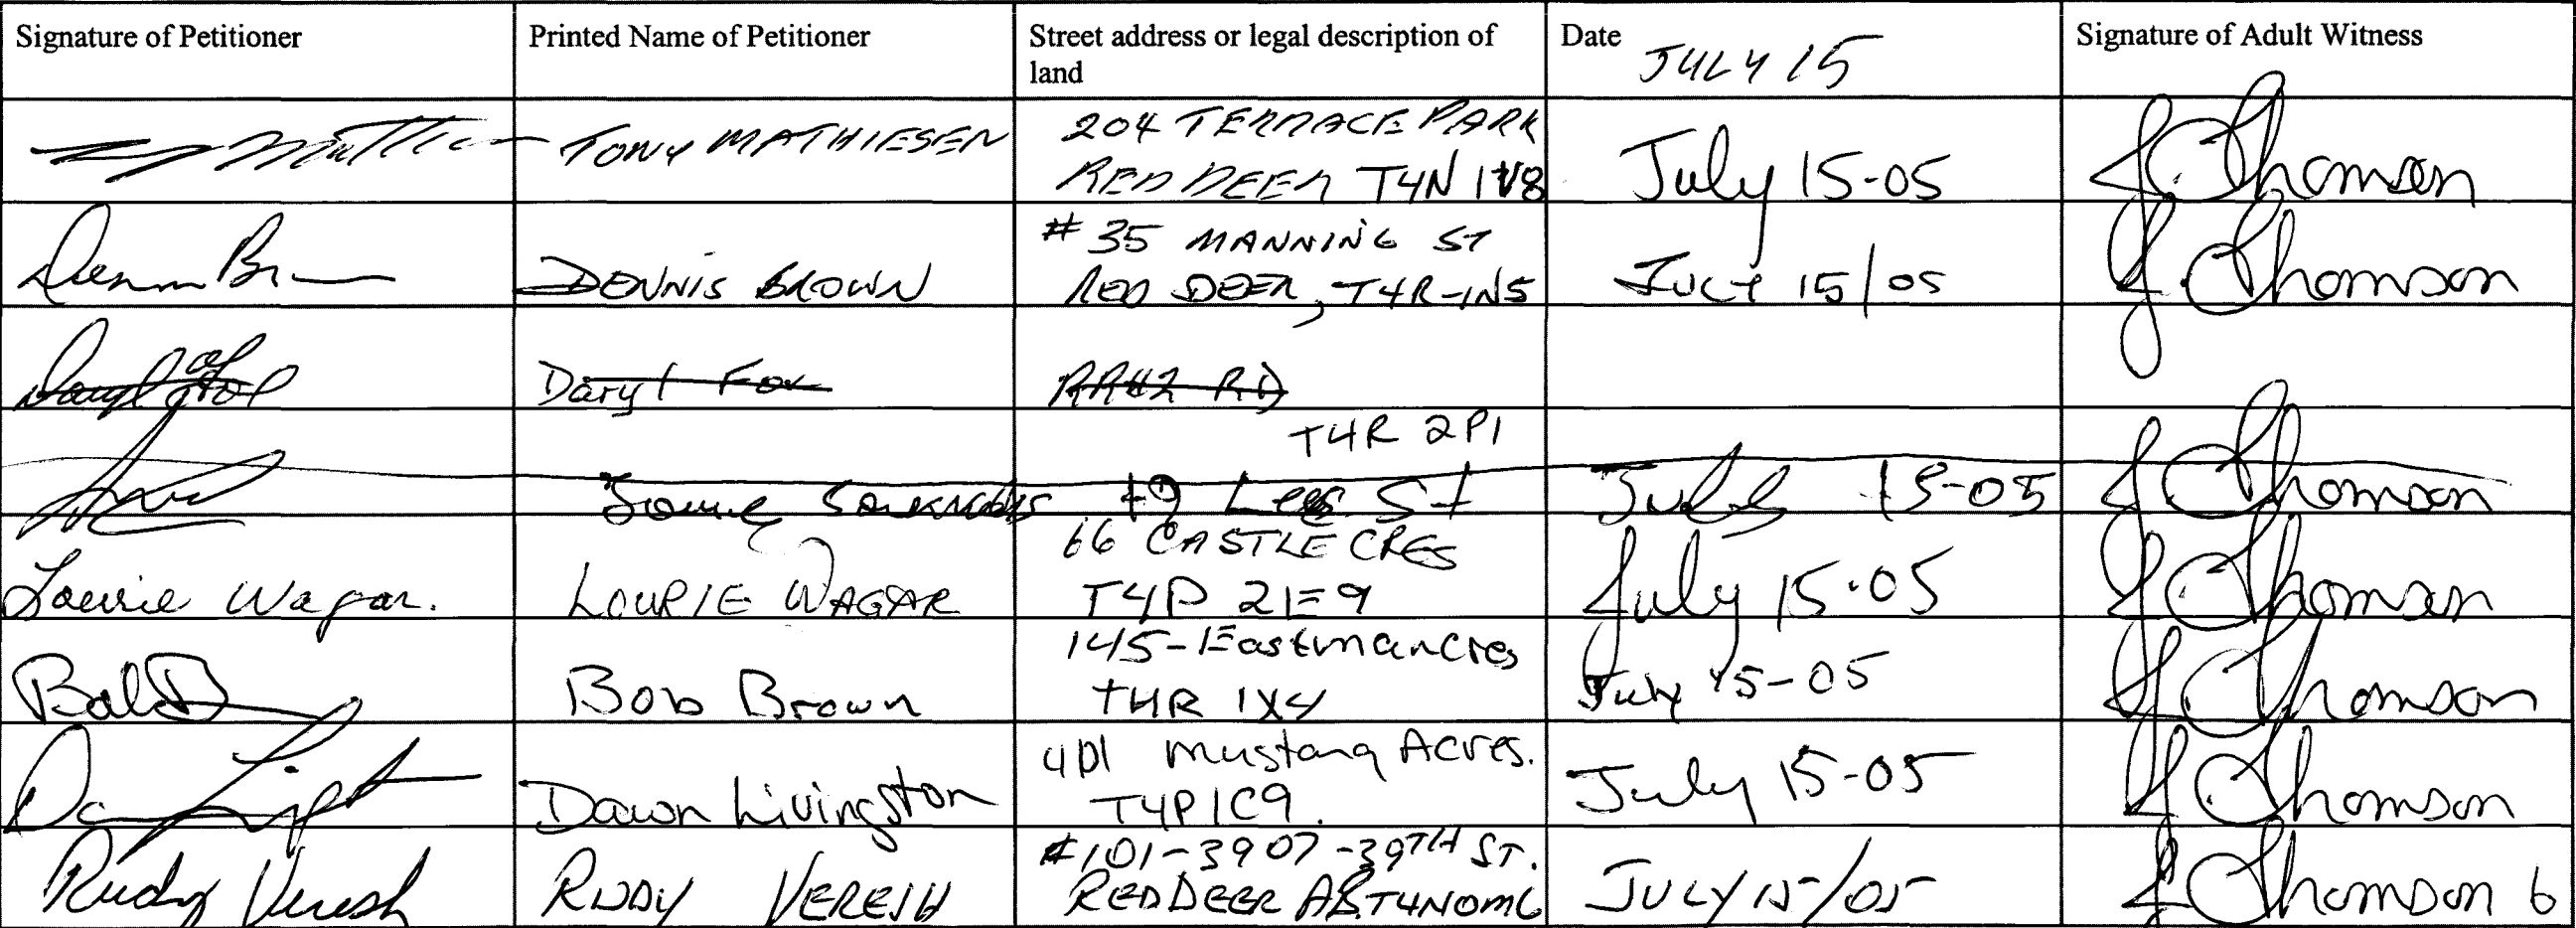 Signature of Petitioner
Printed Name of Petitioner
Street address or legal description of
land
Date
JULY 15
Signature of Adult Witness
TONY MATHIESEN
204 TERRACE PARK
RED DEER T4N 1V8
July 15-05
J. Thomson
DENNIS BROWN
# 35 MANNING ST
RED DEER, T4R-1N5
JULY 15/05
J. Thomson
Daryl Fox
Daryl Fox
RR#2 RD
T4R 2P1
19 Lees St
July 15-05
J Thomson
Lourie Wagar.
LOURIE WAGAR
66 CASTLE CRES
T4P 2E9
July 15-05
J Thomson
Bob B
Bob Brown
145-Eastman cres
T4R 1X4
July 15-05
J Thomson
Dawn Livingston
401 Mustang Acres.
T4P1C9.
July 15-05
J Thomson
Rudy Veresh
RUDY VERESH
#101-3907-39TH ST.
RED DEER AB T4N0M6
JULY 15/05
J Thomson 6